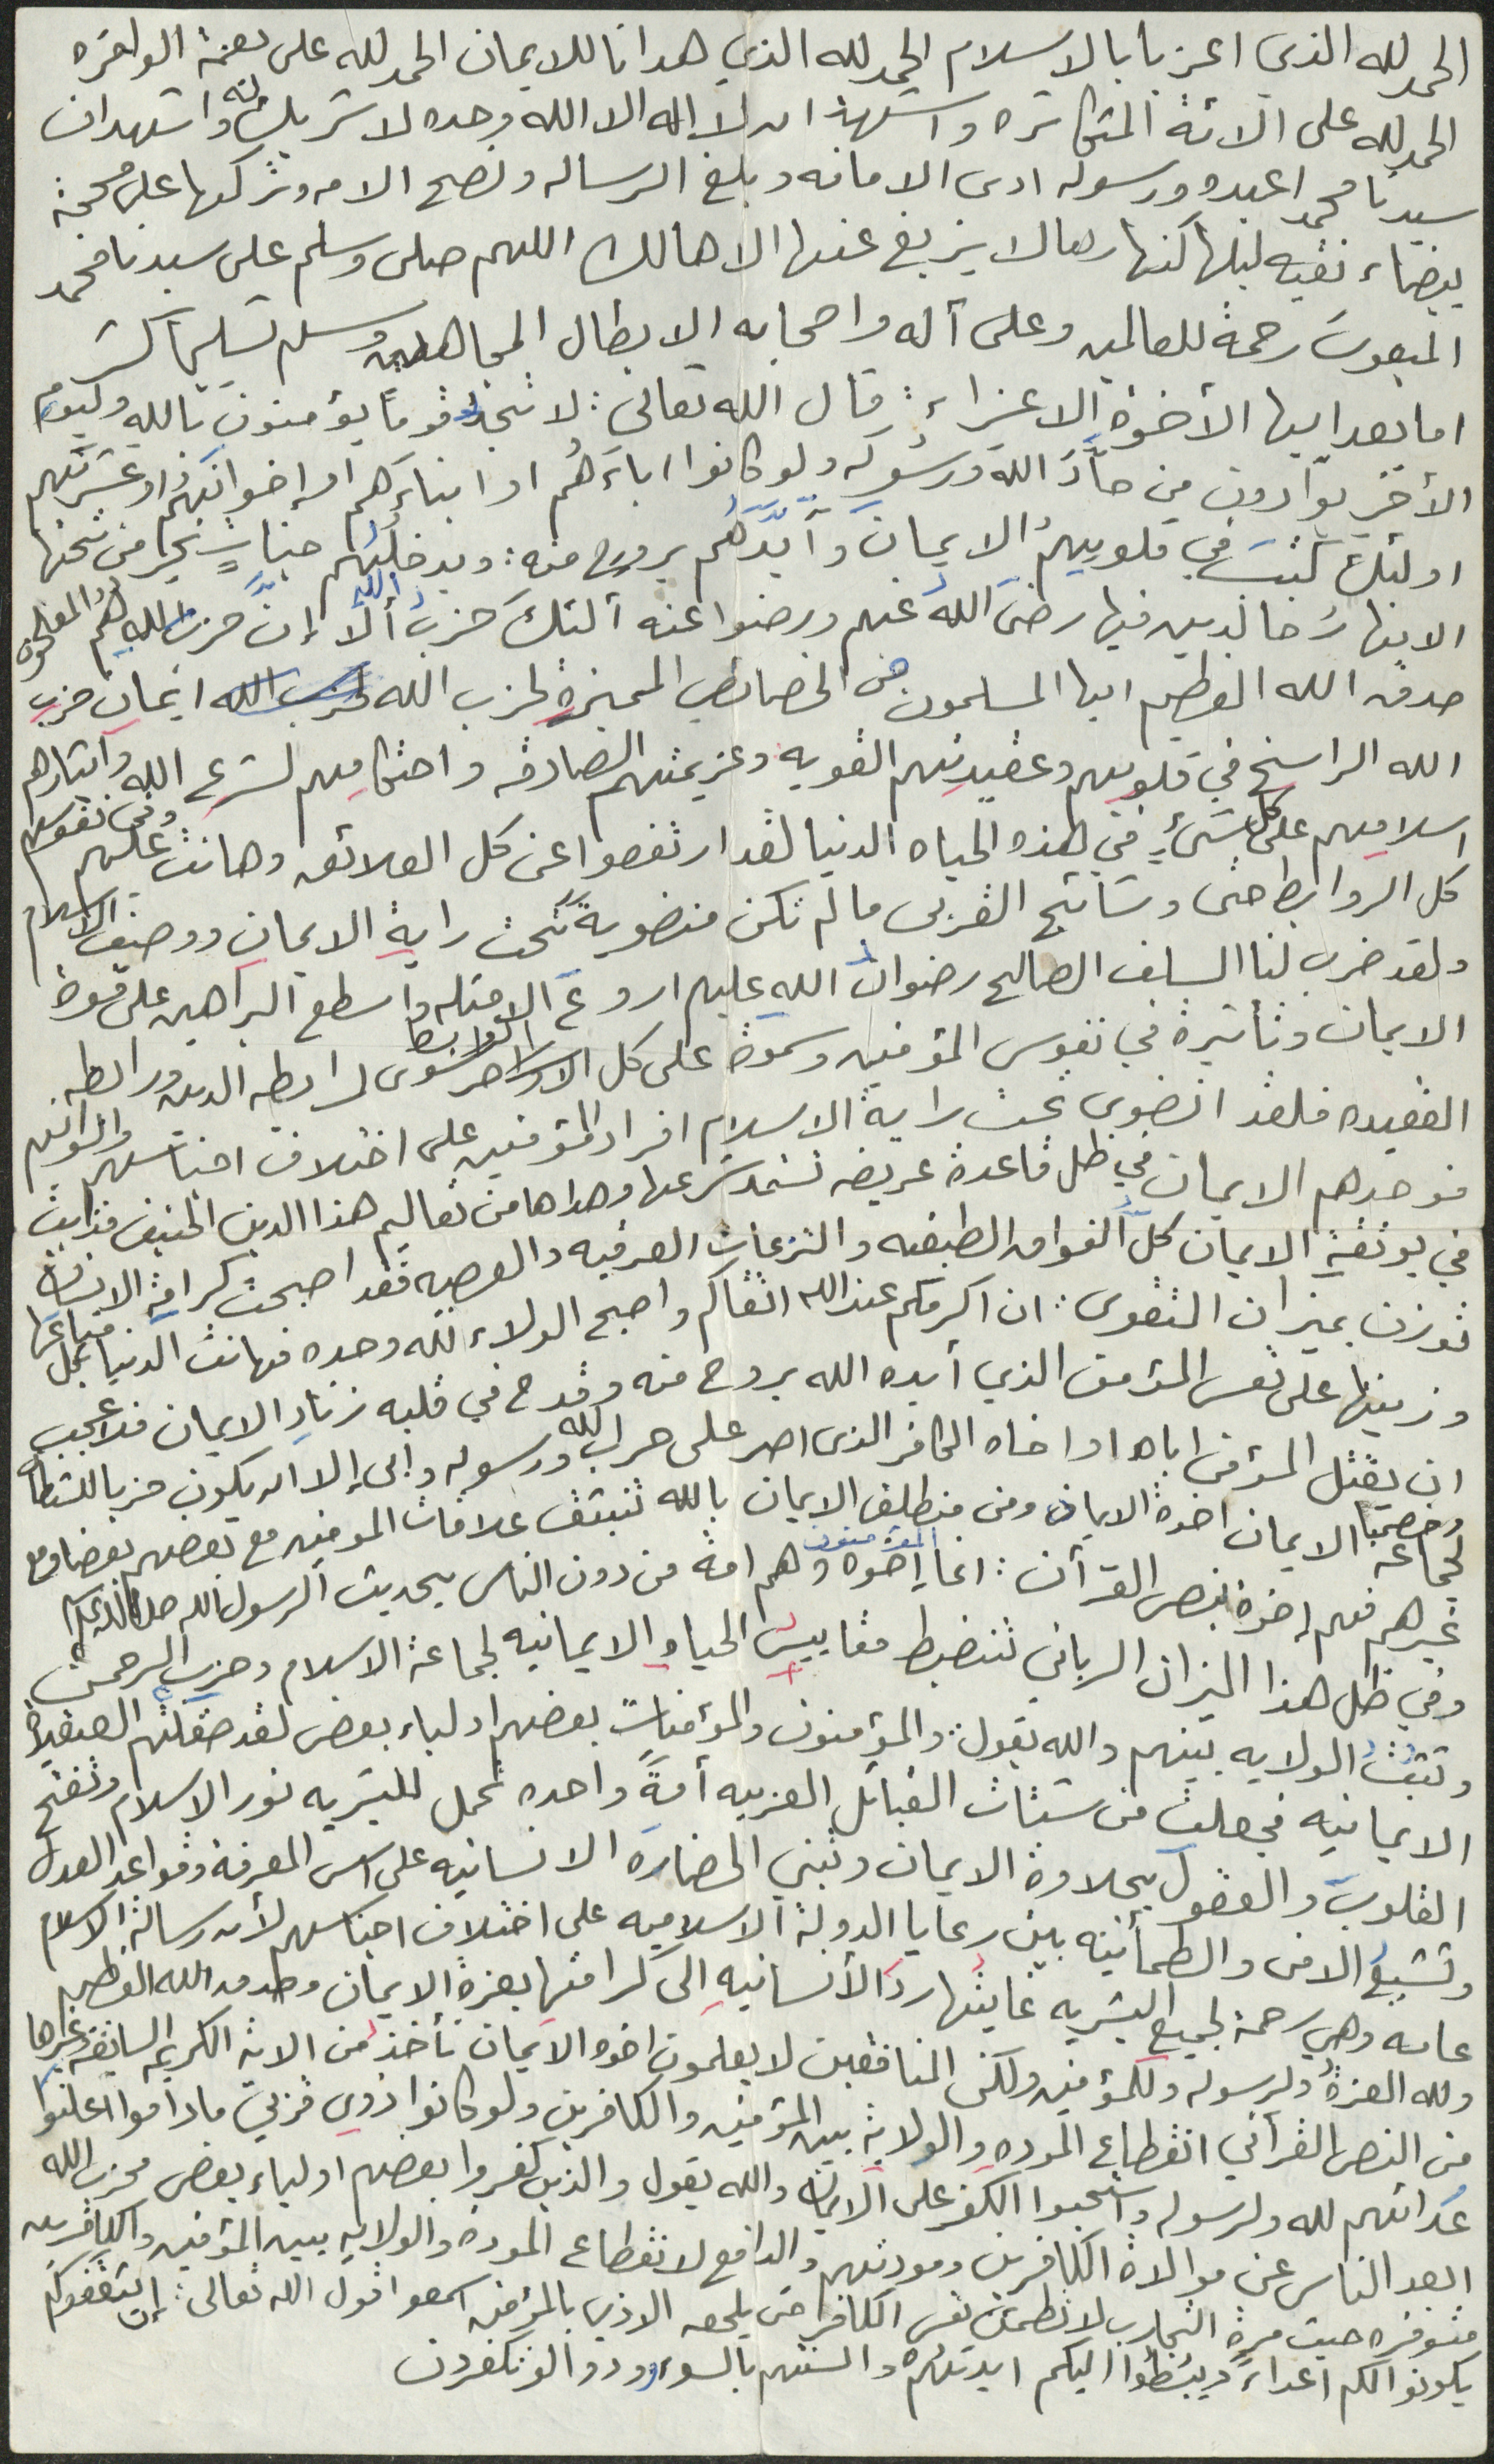 الحمد لله الذي اعزنا بالاسلام الحمد لله الذي هدانا للايمان الحمد لله على نعمة الوافره
الحمد لله على آلائة المتكاثره واشهد ان لا اله الا الله وحده لا شريك له واشهد ان
سيدنا محمدا عبده ورسوله ادى الامانه وبلغ الرساله ونصح الامه وتركها على محجة
بيضاء نقيه ليلها كنهارها لا يزيغ عنها الا هالك اللهم صلى وسلم على سيدنا محمد
المبعوث رحمة للعالمين وعلى آله واصحابه الابطال المجاهدين وسلم تسليماً كثير
اما بعد ايها الأخوة الاعزاء : قال الله تعالى : لا تجد قوماً يؤمنون بالله وليوم
الأخر يوآدون من حآدَّ اللهَ ورسُوله ولو كانوا اباءَهُم او ابناءَهم او إخوانَهُم او عشرتهم
اولئك كتبَ في قلوبهمُ الايمانَ وأيَّدَهُم بروح منه : ويدخلُهم جناتٍ تجرا من تحتها
الانهارُ خالدين فيها رضىَ اللهُ عنهم ورضوا عنه آلئكَ حزبُ الله ألا إنَّ حزبَ اللهِ هُمُ المفلحون
صدق الله العظيم ايها المسلمون من الخصائص المميزةِ لحزب الله ايمان حزب
الله الراسخ في قلوبهم وعقيدتهم القويه وعزيمتهم الصادقه واحتكامهم لشرعِ اللهِ وايثارهم
اسلامهم على كل شئٍ في هذه الحياه الدنيا لقد ارتفعوا عن كل العلائق وهانت عليهم وفي نفوسهم
كل الروابط حتى وشائج القربى ما لم تكن منضويةً تحت رايةِ الايمانِ ووصيف الاسلام
ولقد ضرب لنا السلف الصالح رضوانُ اللهِ عليهم اروعَ الامثله واسطع البراهين على قوة
الايمان وتأثيرة في نفوس المؤمنين وسموة على كل الاواصر الروابط سوى لرابطه الدين ورابطه
العقيده فلقد انضوى تحت راية الاسلام افراد المؤمنين على اختلاف اجناسهم والوانهم
فوحدهم الايمان في ظل قاعدة عريضه تستمد شرعها وهداها من تعاليم هذا الدين الحنيف فذابت
في بوتقةِ الايمان كلُّ الفوارق الطبقيه والنزعات العرقيه والعصبيه فقد اصبحت كرامةِ الانسان
توزن بميزان التقوى : ان اكرمكم عند الله اتقاكم واصبح الولاء لله وحده فهانت الدنيا بكل متاعها
وزينتها على نفس المؤمن الذي أيده الله بروح منه وقدح في قلبه زنادِ الايمان فلا عجب
ان يقتل المؤمن اباه او اخاه الكافر الذي اصر على حرب الله ورسوله وابى إلا ان يكون حزبا للشيطان
وخصما لجماعة الايمان اخوة الايمان ومن منطلق الايمان بالله تنبثق علاقات المومنين مع بعضهم بعضا ومع
غيرهم فهم إخوة بنص القرآن : انما المؤمنون إخوه وهم امة من دون الناس بحديث الرسول الله صلى الله عليه
وفي ظل هذا الميزان الرباني تنضبط مقاييس الحياةِ الايمانيه لجماعة الاسلام وحزب الرحمن
وتثبتُ الولايه بينهم والله يقول : والمؤمنون والمؤمنات بعضهم اولياء بعض لقد صقلتهم العقيدة
الايمانيه فجعلت من شتات القبائل العربيه أمةً واحده تحمل للبشريه نور الاسلام وتفتح
القلوبَ والعقولَ بحلاوة الايمان وتبني الحضاره الانسانيه على اسس المعرفة وقواعد العدل
وتشيعُ الامن والطمأنينه بين رعايا الدولة الاسلاميه على اختلاف اجناسهم لأن رسالة الاسلام
عامه وهي رحمة لجميع البشريه غايتها ردُ الأنسانيهِ الى كرامتها بعزة الايمان وصدق الله العظيم
ولله العزةُ ولرسوله وللمؤمنين ولكن المنافقين لا يعلمون اخوه الايمان نأخذ من الايه الكريمه السابقه وغيرها
من النص القرآني انقطاع الموده والولاية بين المؤمنين والكافرين ولو كانوا ذوي قربى ما داموا اعلنوا
عدائهم لله ولرسوله واستحبوا الكفر على الايمان والله يقول والذين كفروا بعضهم اولياء بعض فحزب الله
ابعد الناس عن موالاة الكافرين ومودتهم والدافع لانقطاع الموده والولايه بين المؤمنين والكافرين
متوفره حيث مرةِ التجارب لا تطمئن نفس الكافر حتى يلحق الاذى بالمؤمن اسمعوا قول الله تعالى : إن يثقفوكم
يكونوا لكم اعداءً ويبسُطُوا اليكم ايديَهُم والسنتهم بالسوء وودوا لو تكفرون